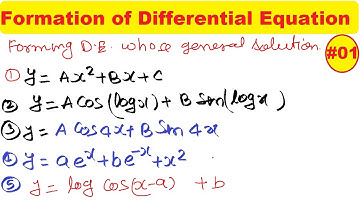 Formation of Differential Equation
Forming D.E. whose general solution
#01
① y = Ax² + Bx + C
② y = A Cos(logx) + B Sin(logx)
③ y = A Cos4x + B Sin 4x
④ y = ae^x + be^-x + x²
⑤ y = log cos(x-a) + b